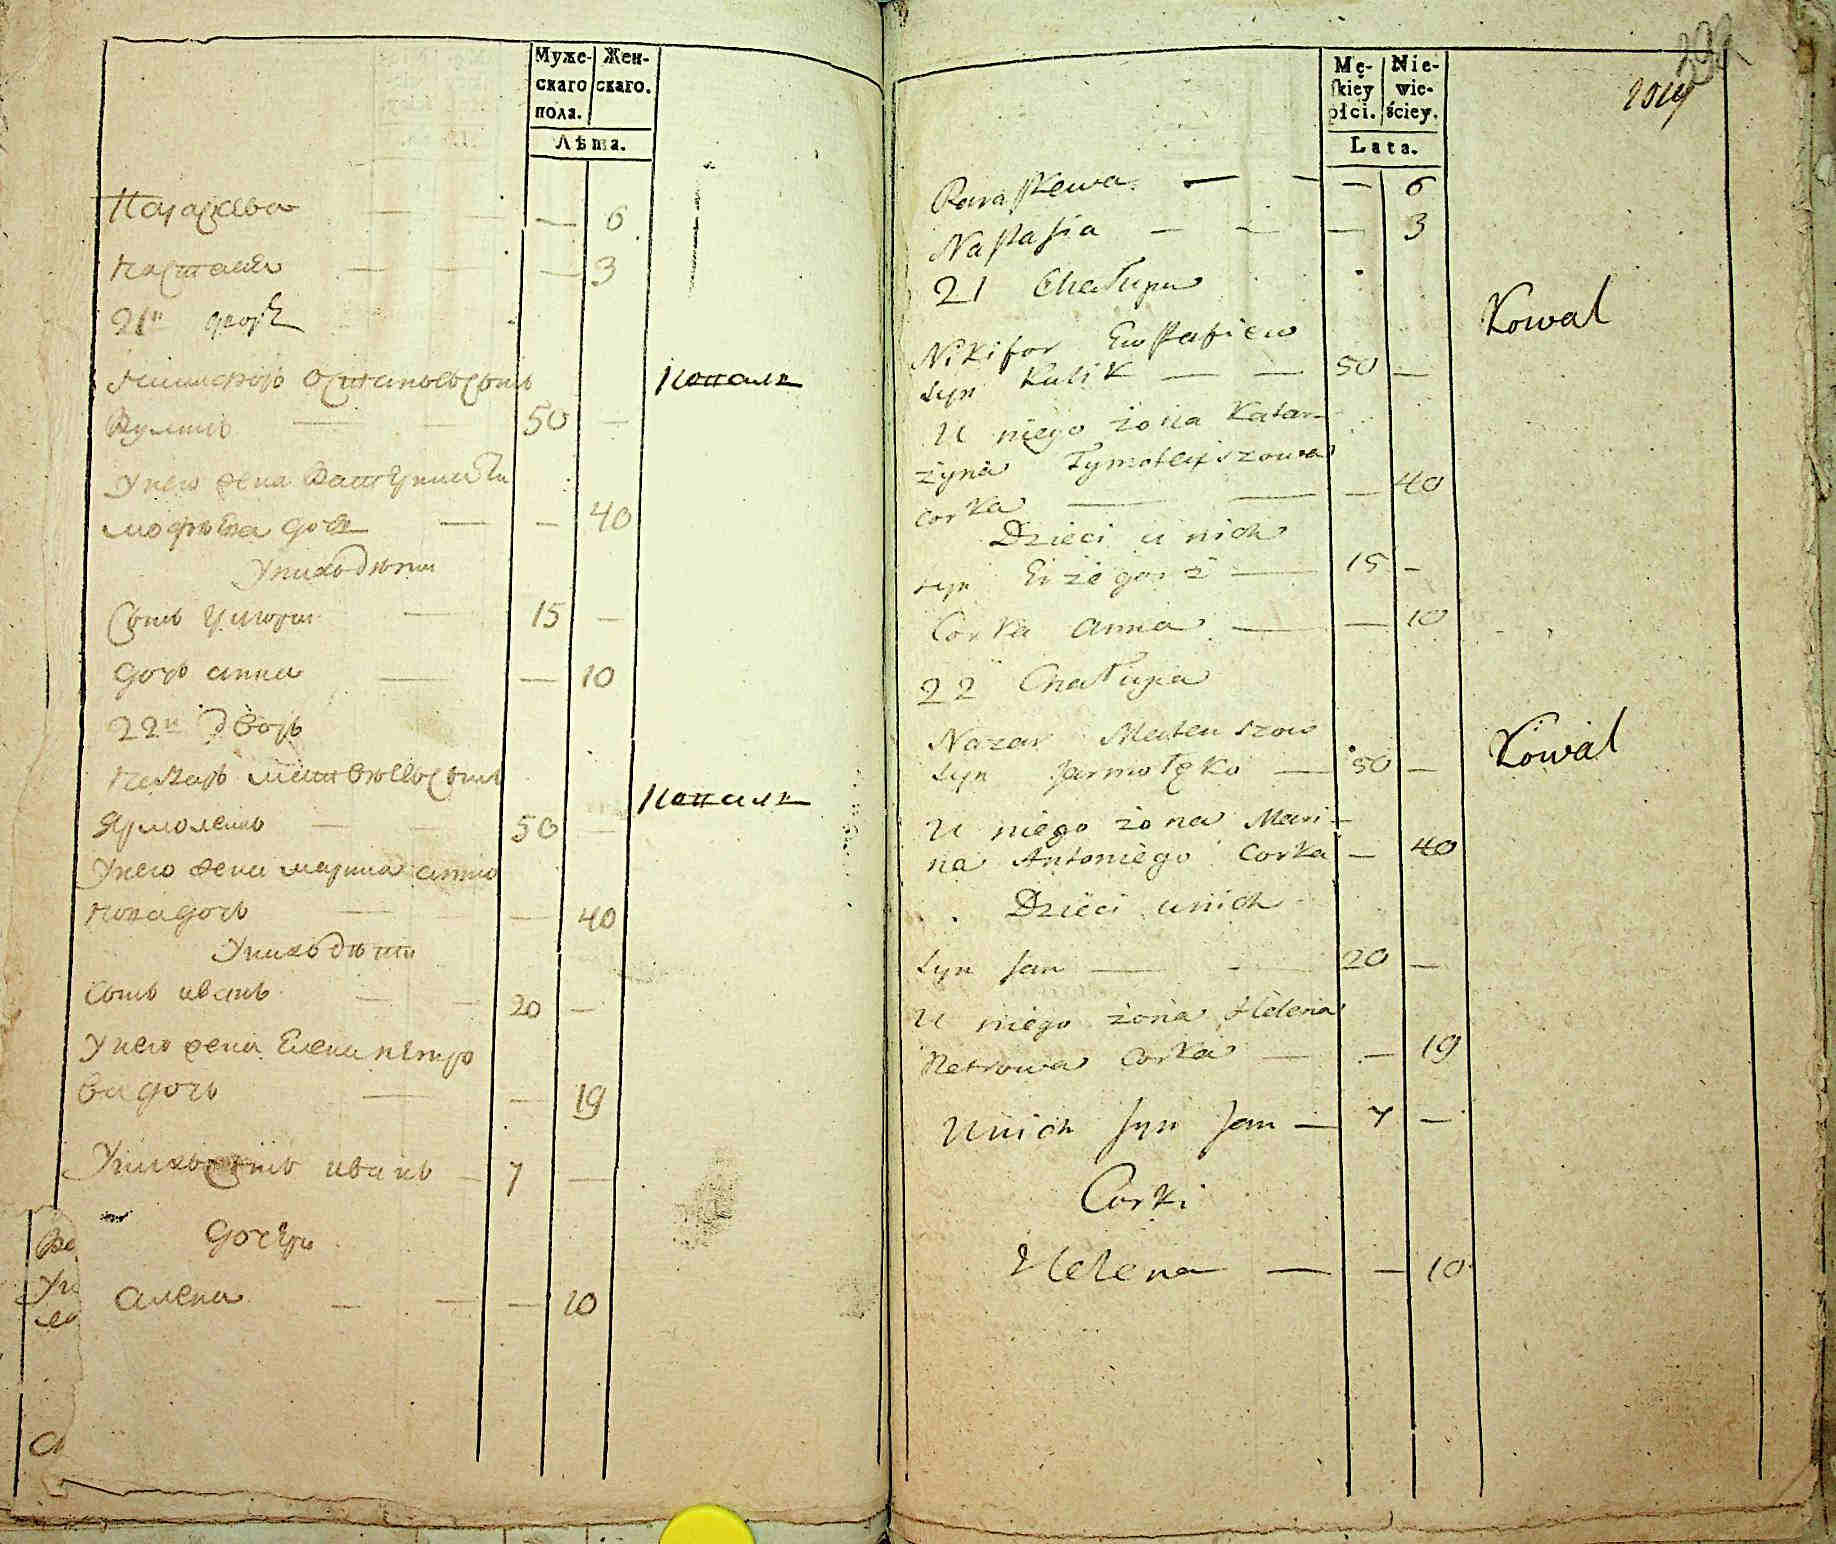 Муже-
скаго
пола.
Жен-
скаго.
Лѣта.
Параскева — — — 6
Настасия — — — 3
21й дворъ
Никифоръ Остапьевъ сынъ
Куликъ — — 50 —
Коваль
У него жена Катерина Ти
мофѣева дочь — — 40
У нихъ дѣти
Сынъ — 15 —
дочь анна — — 10
22й дворъ
Назаръ сынъ
Коваль
Ярмоленко — — 50 —
У него жена марина анто
нова дочь — — 40
У нихъ дѣти
Сынъ иванъ — — 20 —
У него жена Елена петро
ва дочь — — 19
У нихъ сынъ иванъ — 7 —
дочери
алена — — — 10
Mę-
ſkiey
płci.
Nie-
wie-
ściey.
Lata.
Paraſkewa — — — 6
Naſtaſia — — — 3
21 Chałupa
Nikifor Ewſtafiew
syn Kulik — — 50 —
Kowal
U niego żona Katar-
żyna Tymoteyszowa
corka — — — 40
Dzieci u nich
syn — 15 —
Corka Anna — — 10
22 Chałupa
Nazar Mateuszow
syn Jarmołęko — 50 —
Kowal
U niego żona Mari-
na Antoniego Corka — 40
Dzieci u nich
syn Jan — — 20 —
U niego żona Helena
Petrowa Corka — — 19
U nich syn Jan — 7 —
Corki
Helena — — 10